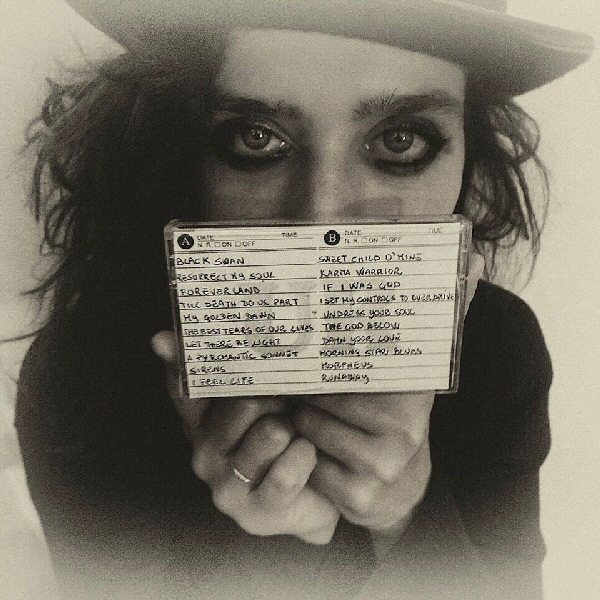 A DATE TIME
N.R. ☐ON ☐OFF
BLACK SWAN
RESURRECT MY SOUL
FOREVERLAND
TILL DEATH DO US PART
MY GOLDEN DAWN
THE BEST TEARS OF OUR LIVES
LET THERE BE LIGHT
A PYROMANTIC SONNET
SIRENS
I FEEL LIFE
B DATE TIME
N.R. ☐ON ☐OFF
SWEET CHILD O'MINE
KARMA WARRIOR
IF I WAS GOD
I SET MY CONTROLS TO OVERDRIVE
UNDRESS YOUR SOUL
THE GOD BELOW
DAMN YOUR LOVE
MORNING STAR BLUES
MORPHEUS
RUNAWAY